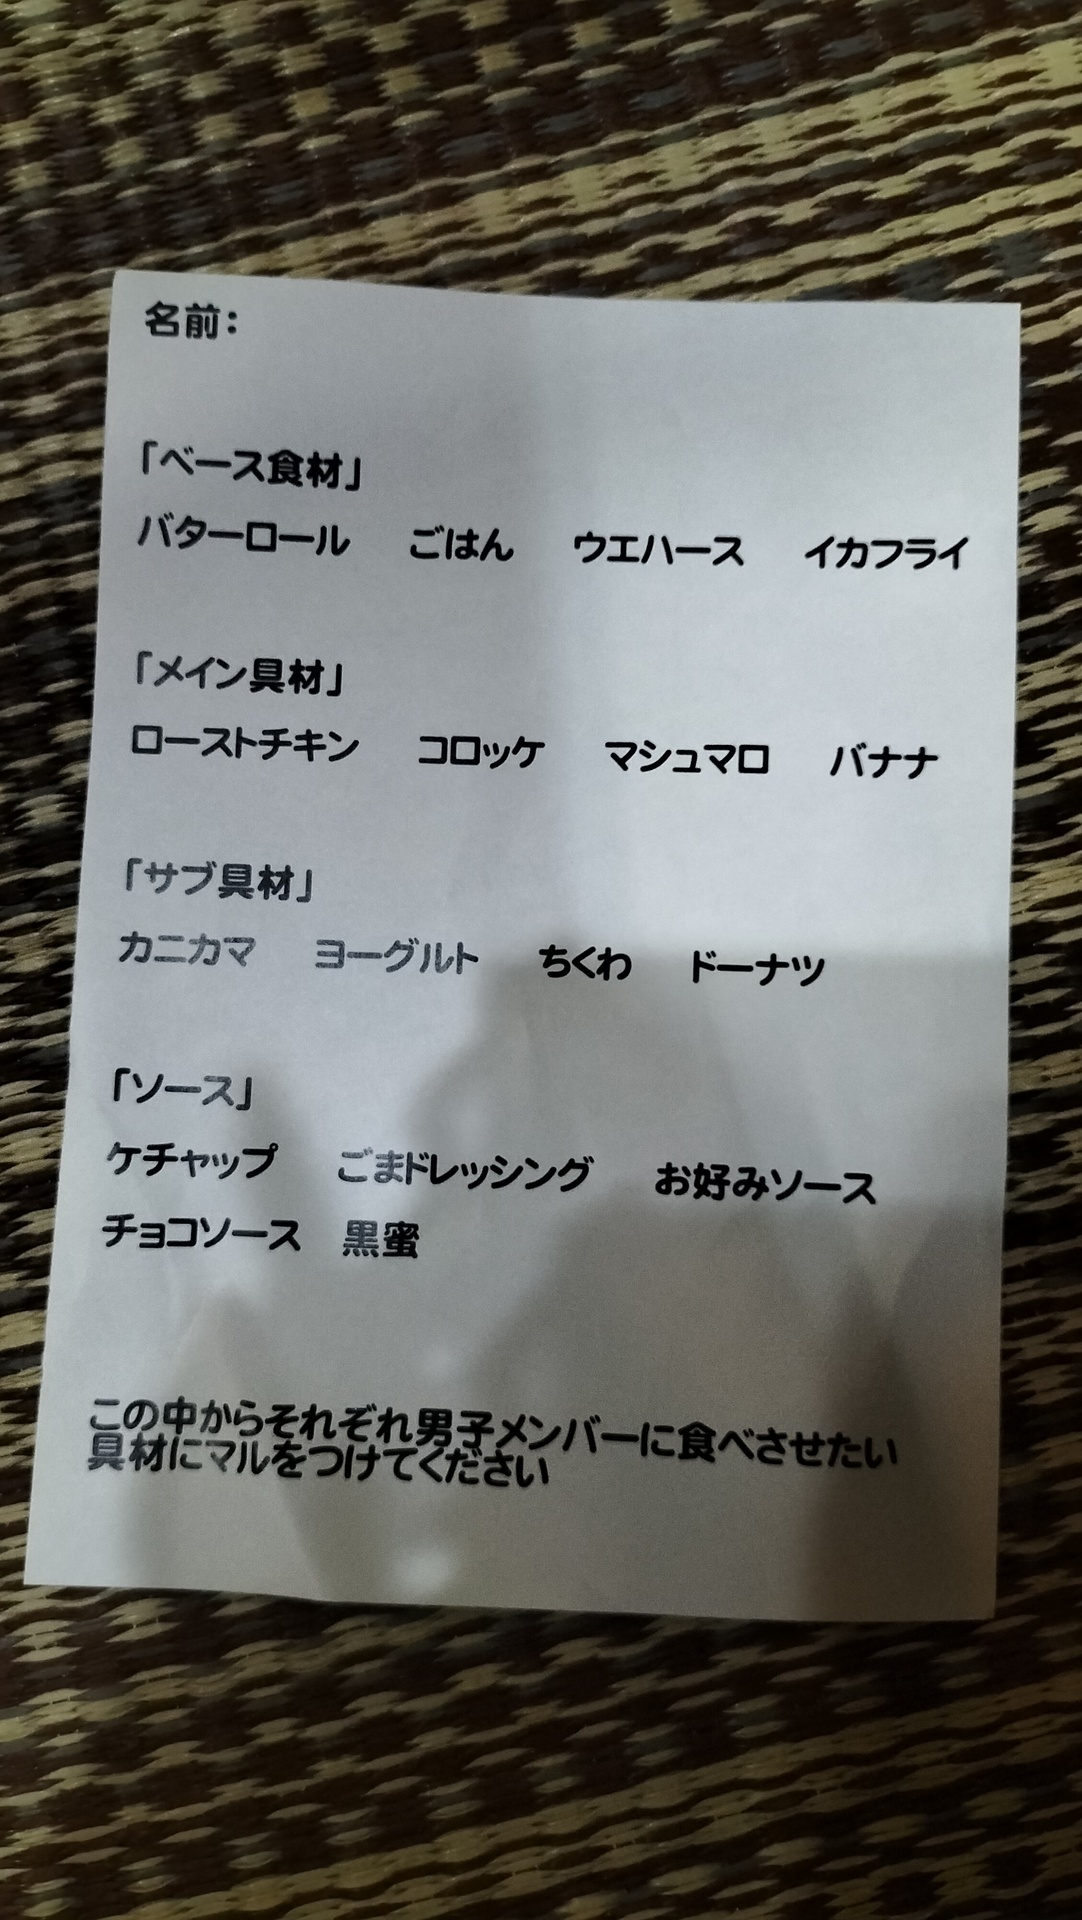 名前:
「ベース食材」
バターロール ごはん ウエハース イカフライ
「メイン具材」
ローストチキン コロッケ マシュマロ バナナ
「サブ具材」
カニカマ ヨーグルト ちくわ ドーナツ
「ソース」
ケチャップ ごまドレッシング お好みソース
チョコソース 黒蜜
この中からそれぞれ男子メンバーに食べさせたい
具材にマルをつけてください